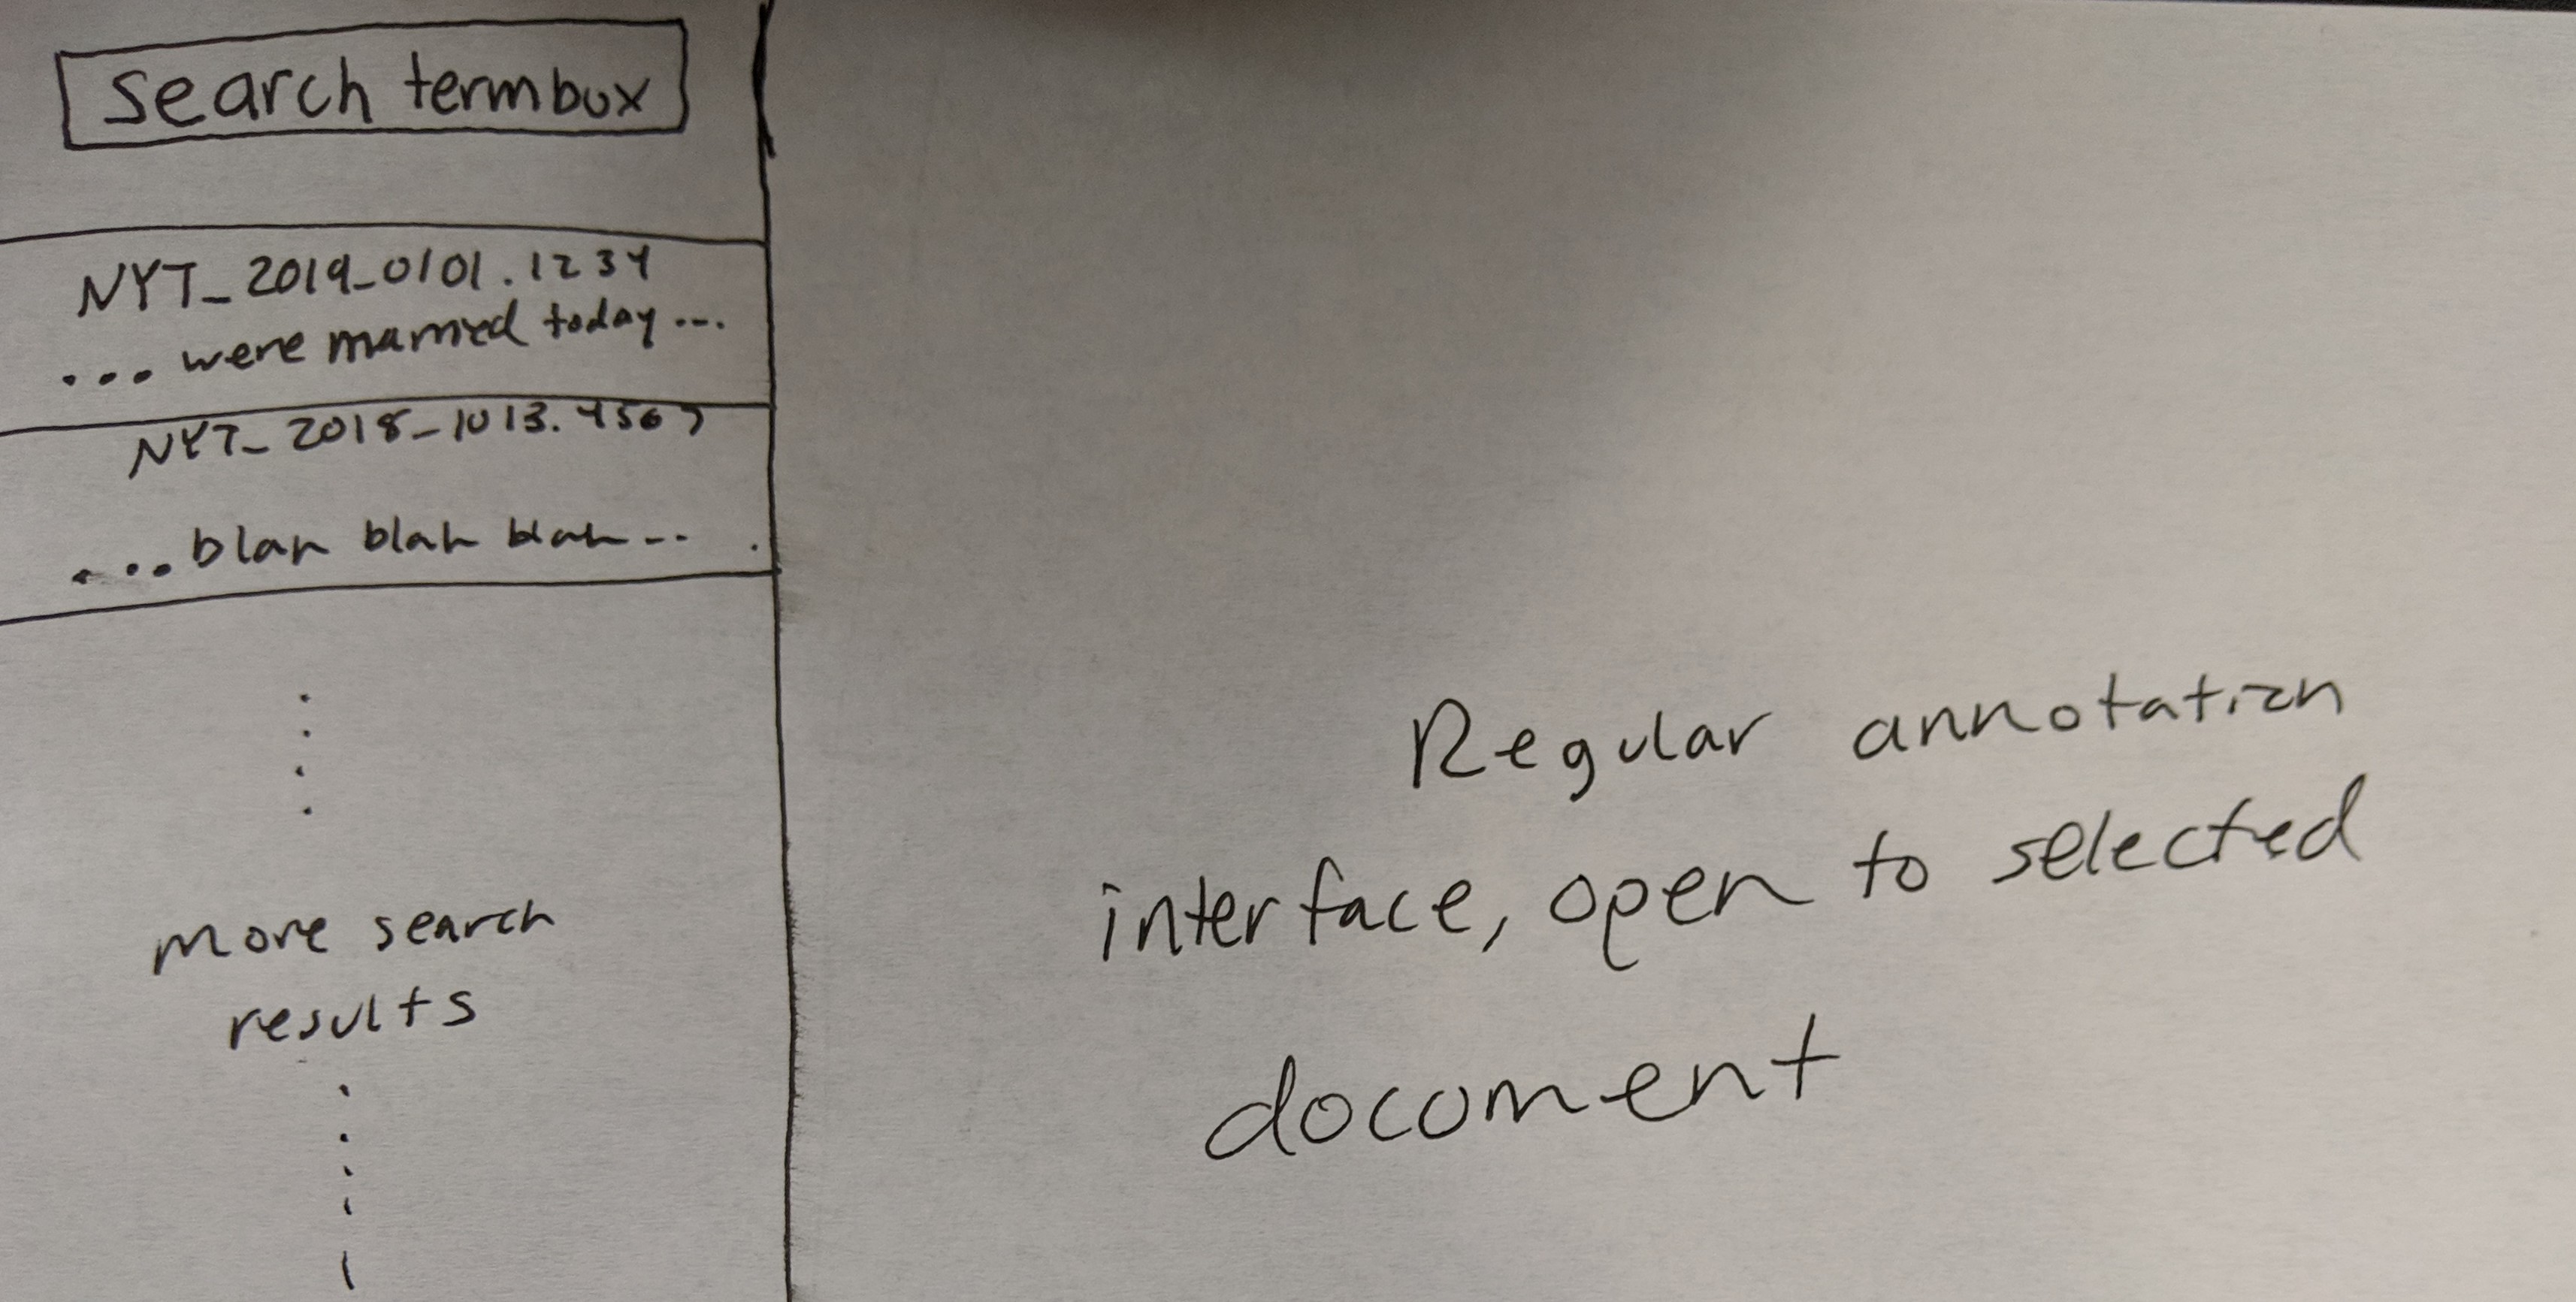 search term box
NYT_2019_0101.1234
... were married today ...
NYT_2018_1013.4567
... blah blah blah ...
more search
results
Regular annotation
interface, open to selected
document